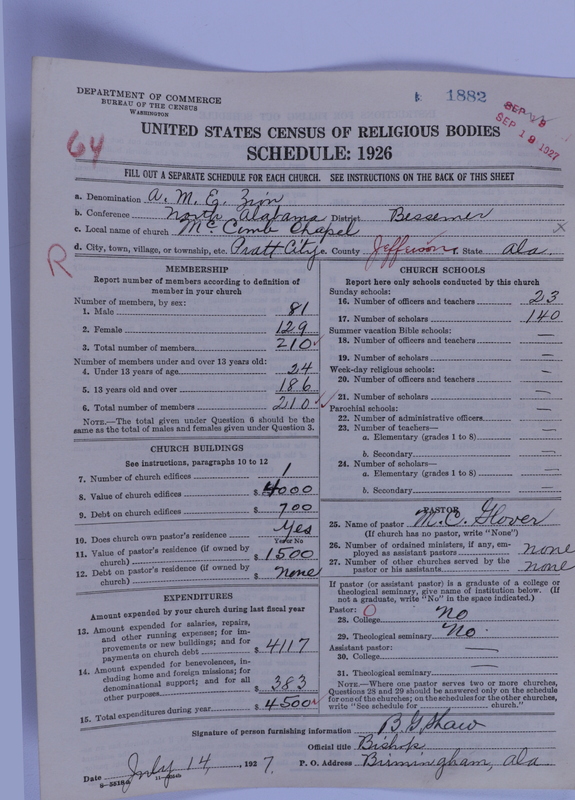 DEPARTMENT OF COMMERCE
BUREAU OF THE CENSUS
WASHINGTON
1882
SEP 19
SEP 19 1927
64
UNITED STATES CENSUS OF RELIGIOUS BODIES
SCHEDULE: 1926
FILL OUT A SEPARATE SCHEDULE FOR EACH CHURCH. SEE INSTRUCTIONS ON THE BACK OF THIS SHEET
a. Denomination A. M. E. Zion
b. Conference North Alabama District Bessemer
c. Local name of church McComb Chapel x
d. City, town, village, or township, etc. Pratt City e. County Jefferson f. State Ala.
R
MEMBERSHIP
Report number of members according to definition of
member in your church
Number of members, by sex:
1. Male 81
2. Female 129
3. Total number of members 210
Number of members under and over 13 years old:
4. Under 13 years of age 24
5. 13 years old and over 186
6. Total number of members 210
NOTE.—The total given under Question 6 should be the
same as the total of males and females given under Question 3.
CHURCH BUILDINGS
See instructions, paragraphs 10 to 12
7. Number of church edifices 1
8. Value of church edifices $ 4000
9. Debt on church edifices $ 700
10. Does church own pastor's residence? Yes
Yes or No
11. Value of pastor's residence (if owned by
church) $ 1500
12. Debt on pastor's residence (if owned by
church) $ none
EXPENDITURES
Amount expended by your church during last fiscal year
13. Amount expended for salaries, repairs,
and other running expenses; for im-
provements or new buildings; and for
payments on church debt $ 4117
14. Amount expended for benevolences, in-
cluding home and foreign missions; for
denominational support; and for all
other purposes $ 383
15. Total expenditures during year $ 4500
CHURCH SCHOOLS
Report here only schools conducted by this church
Sunday schools:
16. Number of officers and teachers 23
17. Number of scholars 140
Summer vacation Bible schools:
18. Number of officers and teachers —
19. Number of scholars —
Week-day religious schools:
20. Number of officers and teachers —
21. Number of scholars —
Parochial schools:
22. Number of administrative officers —
23. Number of teachers—
a. Elementary (grades 1 to 8) —
b. Secondary —
24. Number of scholars—
a. Elementary (grades 1 to 8) —
b. Secondary —
PASTOR
25. Name of pastor M. C. Glover
(If church has no pastor, write "None")
26. Number of ordained ministers, if any, em-
ployed as assistant pastors none
27. Number of other churches served by the
pastor or his assistants none
If pastor (or assistant pastor) is a graduate of a college or
theological seminary, give name of institution below. (If
not a graduate, write "No" in the space indicated.)
Pastor: O
28. College No
29. Theological seminary No.
Assistant pastor:
30. College —
31. Theological seminary —
NOTE.—Where one pastor serves two or more churches,
Questions 28 and 29 should be answered only on the schedule
for one of the churches; on the schedules for the other churches,
write "See schedule for church."
Signature of person furnishing information B. G. Shaw
Official title Bishop
Date July 14, 1927. P. O. Address Birmingham, Ala.